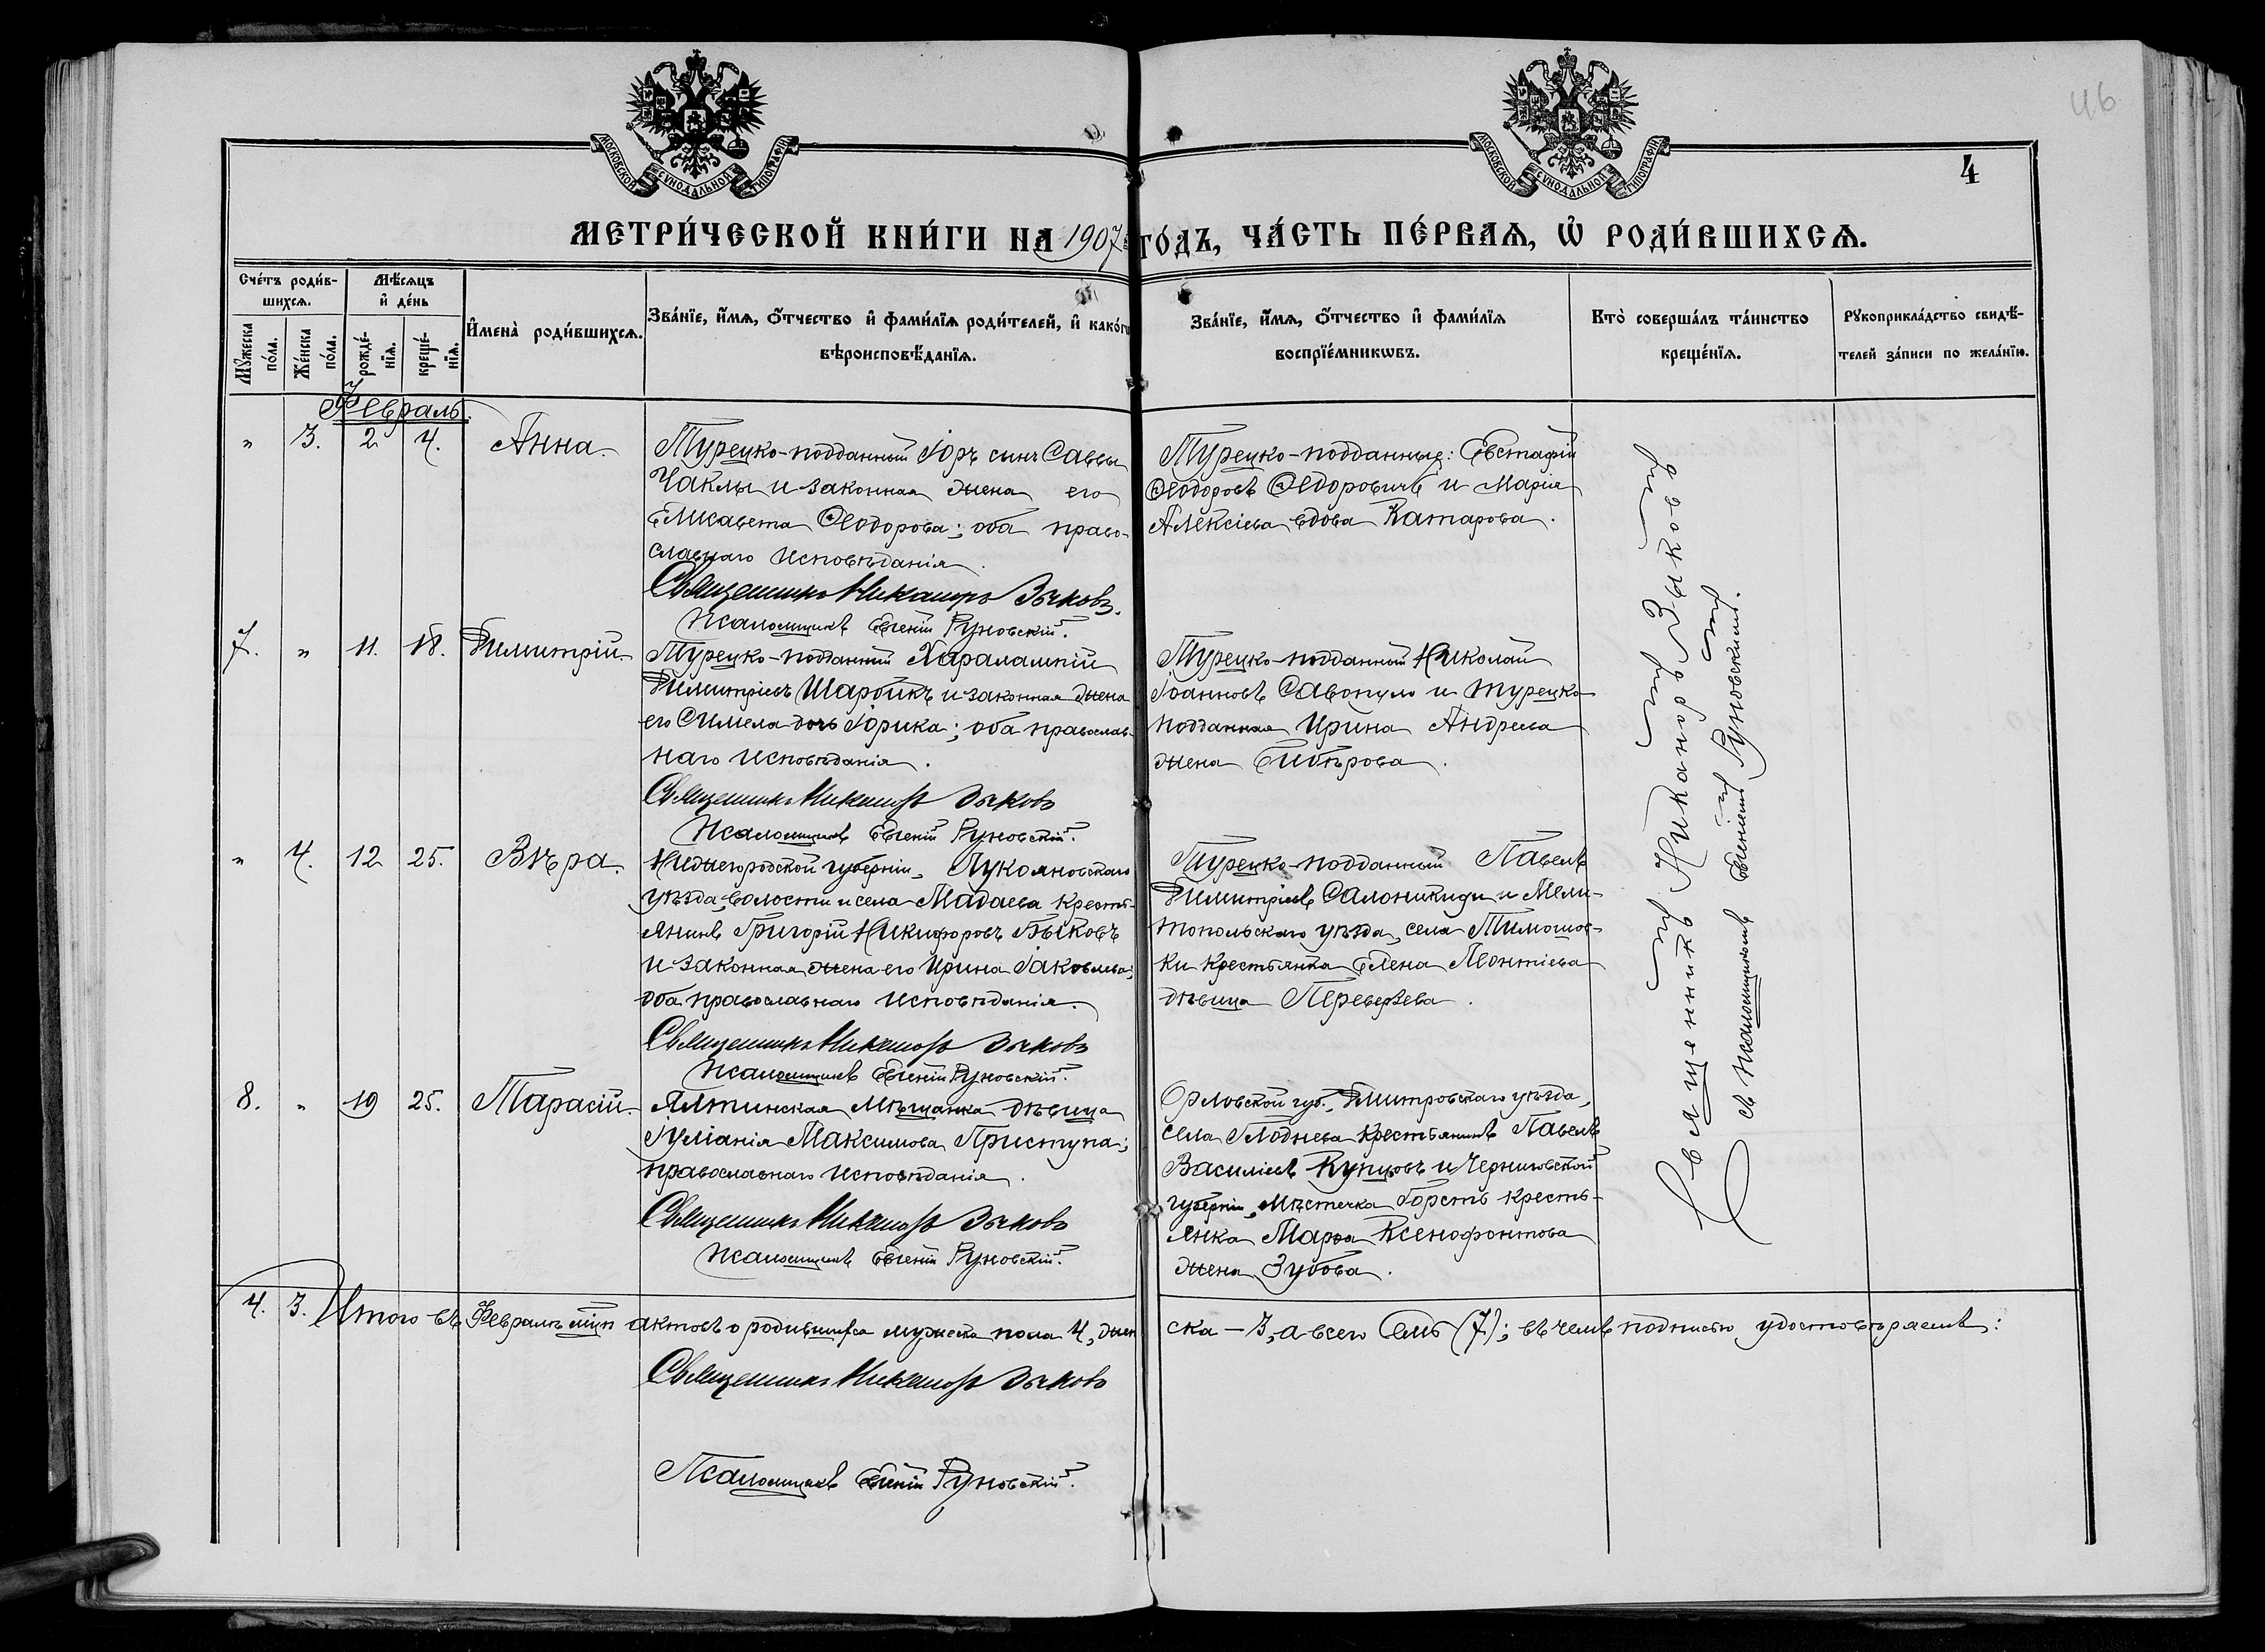 МОСКОВСКОЙ СѴНОДАЛЬНОЙ ТИПОГРАФІИ
МОСКОВСКОЙ СѴНОДАЛЬНОЙ ТИПОГРАФІИ
46
4
МЕТРИ́ЧЕСКОЙ КНИ́ГИ НА 1907 ГО́ДЪ, ЧА́СТЬ ПЕ́РВАѦ, Ѡ҆ РОДИ́ВШИХСѦ.
Сче́тъ роди́в-
шихсѧ.
Мѣ́сѧцъ
и҆ де́нь
Мꙋ́жеска
по́ла.
Же́нска
по́ла.
рожде́-
нїѧ.
креще́-
нїѧ.
И҆мена̀ роди́вшихсѧ.
Зва́нїе, и҆́мѧ, ѻ҆́тчество и҆ фами́лїѧ роди́телей, и҆ како́гѡ
вѣроисповѣ́данїѧ.
Зва́нїе, и҆́мѧ, ѻ҆́тчество и҆ фами́лїѧ
воспрїе́мникѡвъ.
Кто̀ соверша́лъ та́инство
креще́нїѧ.
Рꙋкоприкла́дство свидѣ́-
телей за́писи по жела́нїю.
Февраль.
" 3. 2 4. Анна.
Турецко-подданный Іоръ сынъ Саввы
Чаклы и законная жена его
Елисавета Ѳеодорова; оба право-
славнаго исповѣданія.
Священникъ Никаноръ Зыковъ.
Псаломщикъ Евгеній Руновскій.
Турецко-подданные: Евстафій
Ѳеодоровъ Ѳедоровичъ и Марія
Алексіева вдова Катарова.
7. " 11. 18. Димитрій.
Турецко-подданный Харалампій
Димитріевъ Шаробикъ и законная жена
его Симела дочь Іорика; оба православ-
наго исповѣданія.
Священникъ Никаноръ Зыковъ
Псаломщикъ Евгеній Руновскій.
Турецко-подданный Николай
Іоанновъ Савопуло и турецко-
подданная Ирина Андреева
жена
" 4. 12 25. Вѣра.
Нижегородской губерніи, Лукояновскаго
уѣзда, волости и села Мадаева кресть-
янинъ Григорій Никифоровъ Быковъ
и законная жена его Ирина Іаковлева;
оба православнаго исповѣданія.
Священникъ Никаноръ Зыковъ
Псаломщикъ Евгеній Руновскій.
Турецко-подданный Павелъ
Димитріевъ Салоникиди и Мели-
топольскаго уѣзда, села Тимошов-
ки крестьянка Елена Леонтіева
дѣвица Переверзева.
8. " 19 25. Тарасій.
Ялтинская мѣщанка дѣвица
Іуліанія Максимова Приступа;
православнаго исповѣданія.
Священникъ Никаноръ Зыковъ
Псаломщикъ Евгеній Руновскій.
Орловской губ., Дмитровскаго уѣзда,
села Глоднева крестьянинъ Павелъ
Василіевъ Купцовъ и Черниговской
губерніи, мѣстечка кресть-
янка Марѳа Ксенофонтова
жена Зубова.
Священникъ Никаноръ Зыковъ
съ псаломщикомъ Евгеніемъ Руновскимъ.
4. 3. Итого въ Февралѣ мцѣ актовъ о родившихся мужеска пола 4, жен
ска – 3, а всего семь (7); въ чемъ подписью удостовѣряемъ:
Священникъ Никаноръ Зыковъ
Псаломщикъ Евгеній Руновскій.